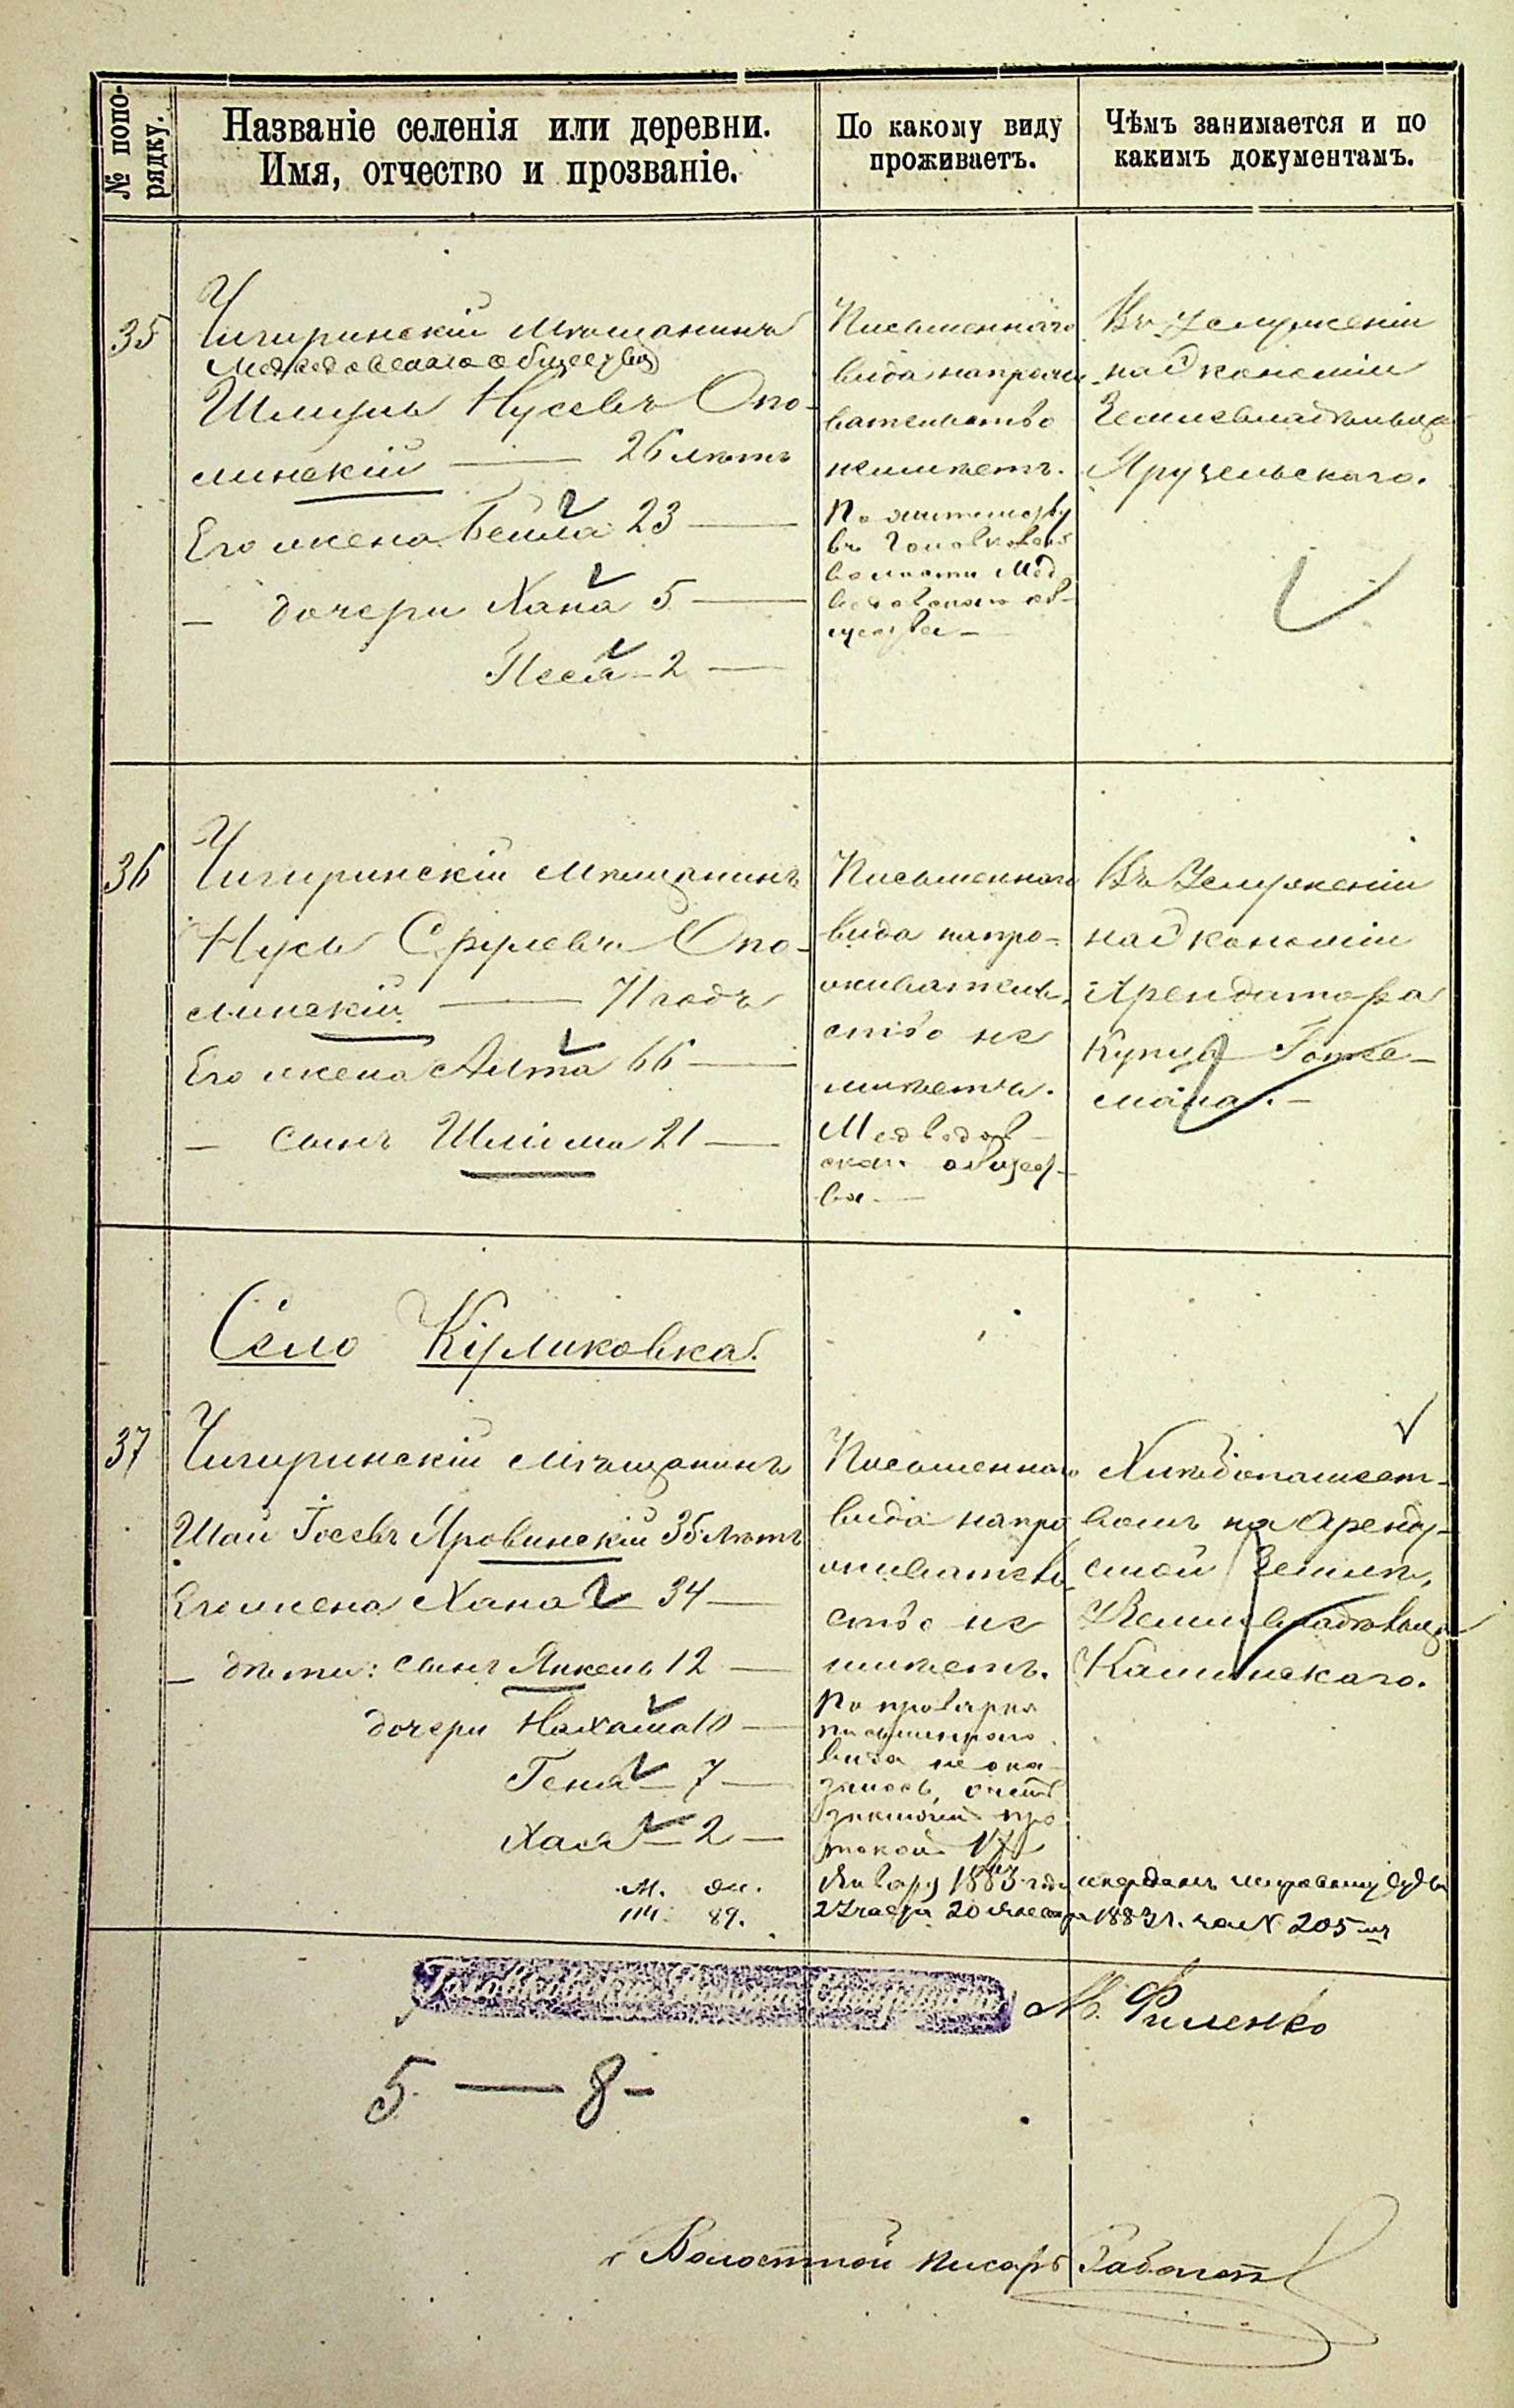 № попо-
рядку.
Названіе селенія или деревни.
Имя, отчество и прозваніе.
По какому виду
проживаетъ.
Чѣмъ занимается и по
какимъ документамъ.
35
Чигиринскій мѣщанинъ
Медведовскаго общества
Шмуль Нусевъ Опо-
линскій — 26 лѣтъ
Его жена Бейла 23 —
— дочери Хана 5 —
Песя — 2 —
Письменнаго
вида на прожи-
вательство
неимѣетъ.
По жительству
въ Головковской
волости Мед
ведовскаго об-
щества —
Въ услуженіи
надкономіи
Землевладѣльца
Ярузельскаго.
36
Чигиринскій мѣщанинъ
Нусь Срулевъ Опо-
линскій — 71 годъ
Его жена Алта 66 —
— сынъ Шлiома 21 —
Письменнаго
вида на про-
живатель-
ство не
имѣетъ.
Медведов-
ска. общест-
ва —
Въ Услуженіи
надкономіи
Арендатора
Купца
Село Куликовка.
37
Чигиринскій мѣщанинъ
Шаи Іосевъ Яровинскій 35 лѣтъ
Его жена Хана 34 —
— дѣти: сынъ Янкель 12 —
дочери Нахама 10 —
Геня — 7 —
Хая — 2 —
м. ж.
114. 89.
Письменнаго
вида на про
живатель-
ство не
имѣетъ.
По проверке
письменнаго
вида не ока-
залось, о чемъ
заключенъ про
токолъ 17
Января 1883 года
и переданъ мировому Судьѣ
20 1883 г. за № 205 мъ
Хлѣбопашест-
вомъ на Аренду-
емой Землѣ,
у Землевладѣльца
Каминскаго.
Головковскій Волост. Старшина
М. Филенко
5 — 8 —
Волостной писарь